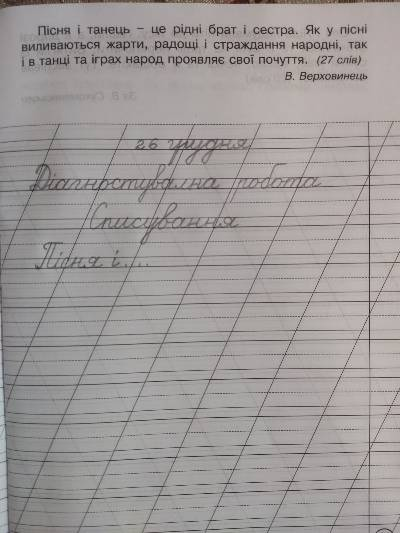 Пісня і танець – це рідні брат і сестра. Як у пісні
виливаються жарти, радощі і страждання народні, так
і в танці та іграх народ проявляє свої почуття. (27 слів)
В. Верховинець
26 грудня
Діагностувална робота
Списування
Пісня і....